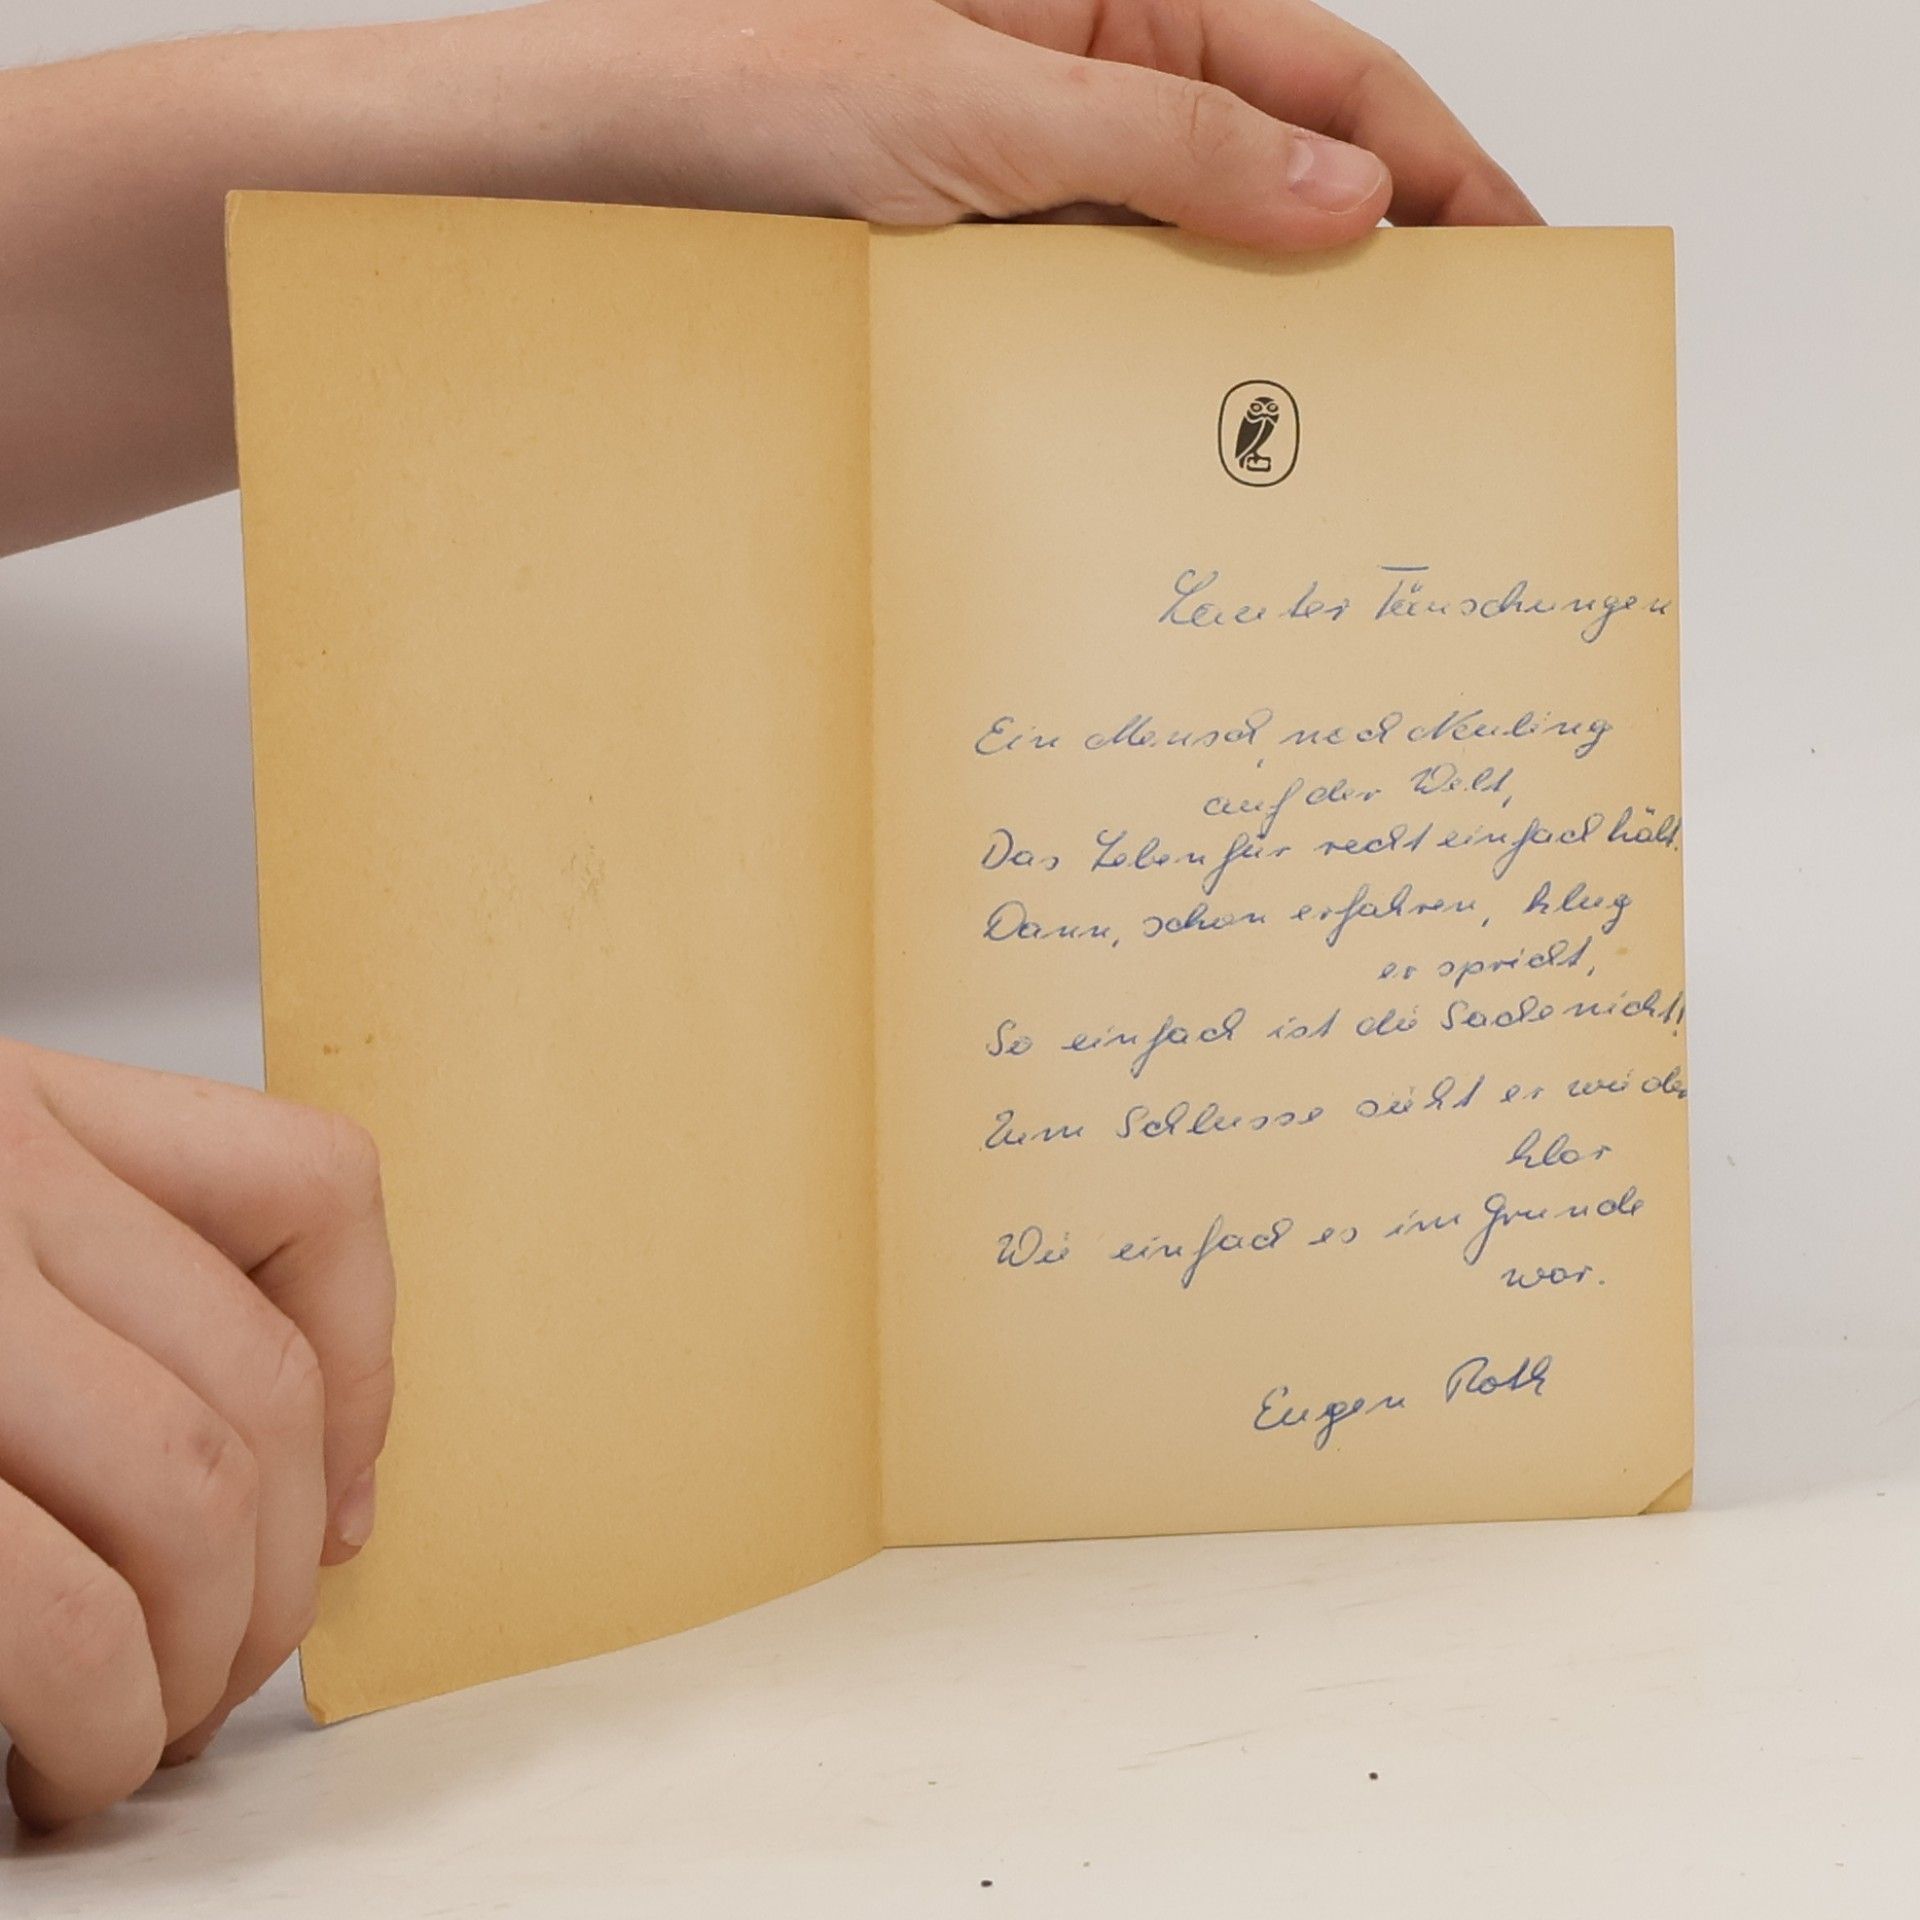 Lauter Täuschungen
Ein Mensch, noch Neuling
auf der Welt,
Das Leben für recht einfach hält.
Dann, schon erfahren, klug
er spricht,
So einfach ist die Sache nicht!
Zum Schlusse sieht er wieder
klar
Wie einfach es im Grunde
war.
Eugen Roth